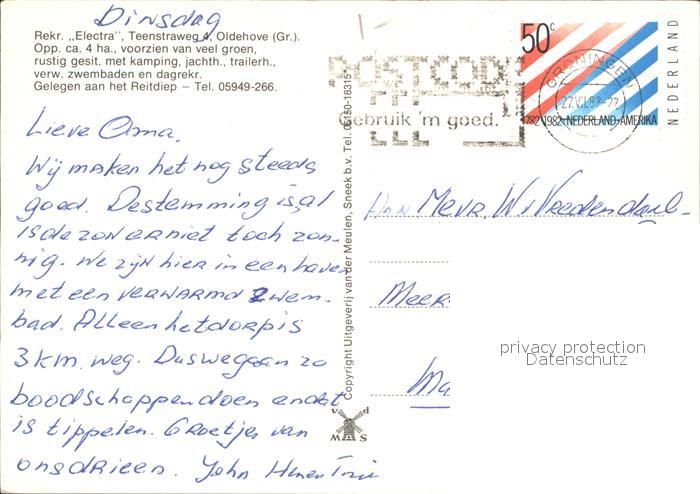 Dinsdag
Rekr. ,,Electra'', Teenstraweg 4, Oldehove (Gr.).
Opp. ca. 4 ha., voorzien van veel groen,
rustig gesit. met kamping, jachth., trailerh.,
verw. zwembaden en dagrekr.
Gelegen aan het Reitdiep – Tel. 05949-266.
Lieve Oma,
Wij maken het nog steeds
goed. De stemming is, al
is de zon er niet toch zon-
nig. We zijn hier in een haven
met een verwarmd zwem-
bad. Alleen het dorp is
3 km. weg. Dus we gaan zo
boodschappen doen en dat
is tippelen. Groetjes van
ons drieen. John
Copyright Uitgeverij van der Meulen, Sneek b.v. Tel. 05150-18315
v d
MAS
POSTCODE
Gebruik 'm goed.
GRONINGEN
27.VII.82-22
50c
1782-1982 NEDERLAND-AMERIKA
NEDERLAND
Aan Mevr. W. v Vredendaal-
Meer
Ma
privacy protection
Datenschutz